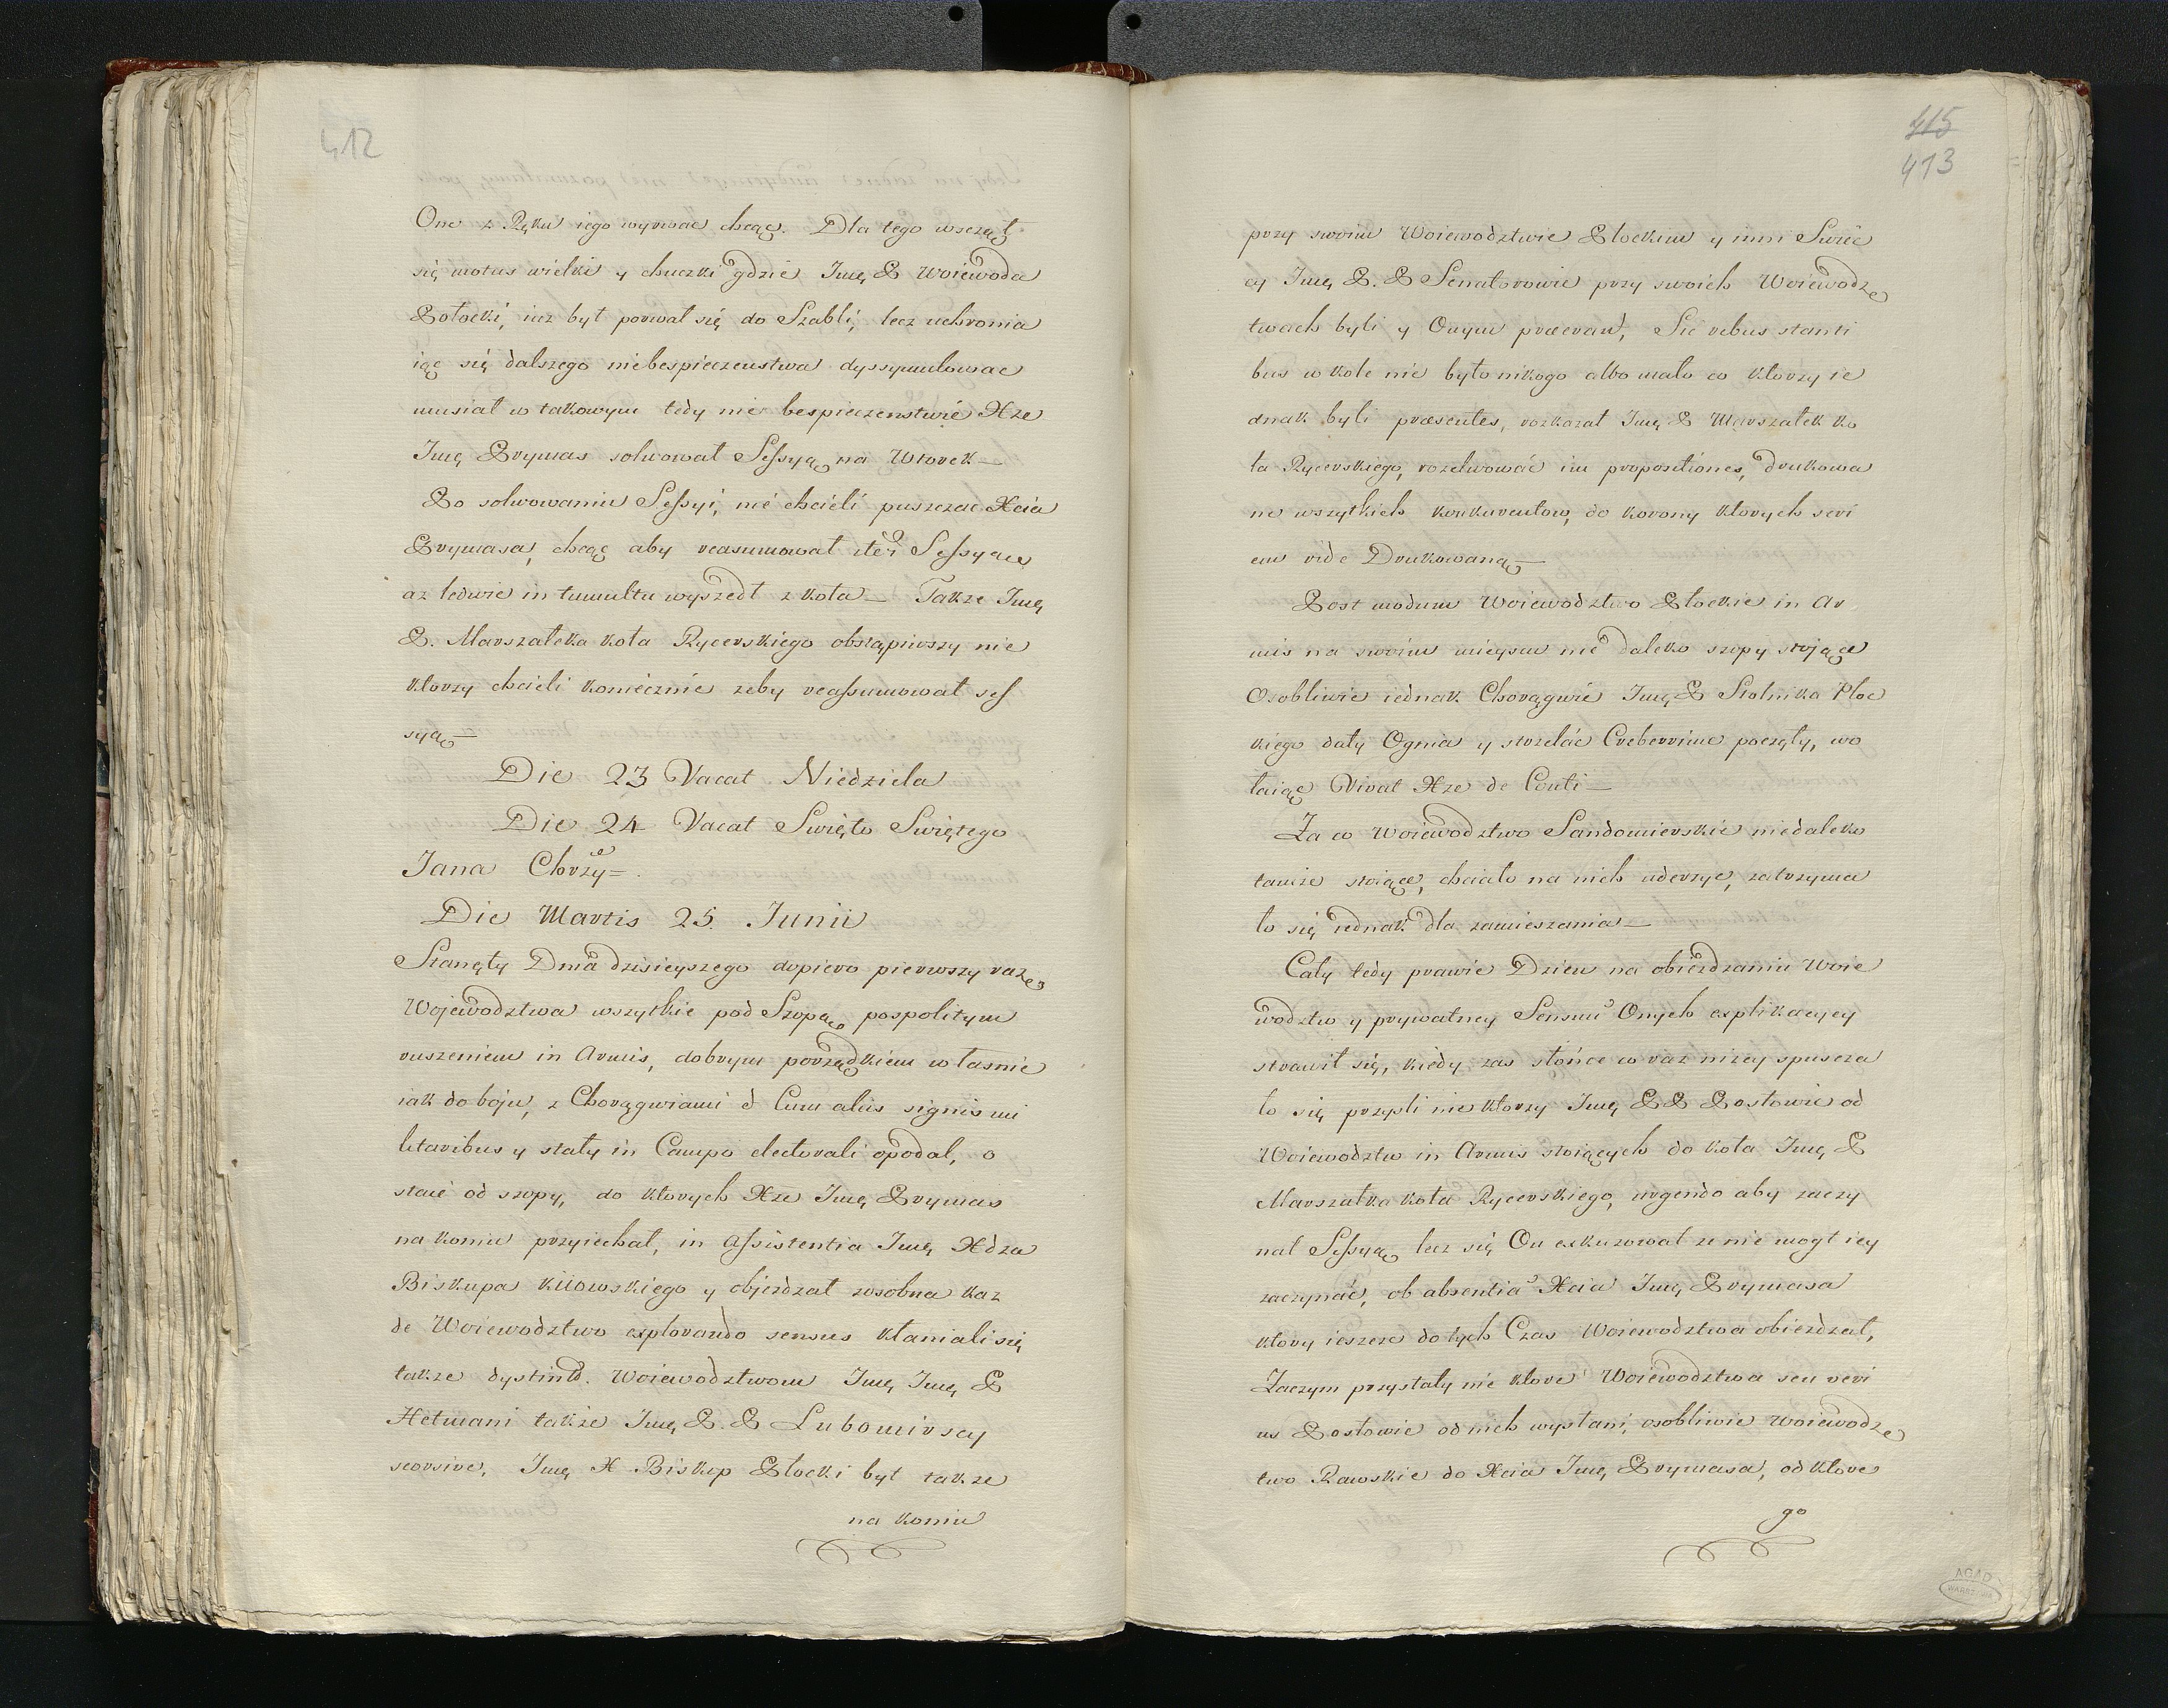 412
One z Ręku iego wyrwac chcąc. Dla tego wszcząt
się motus wielki y chuczki gdzie Jmę P Woiewoda
Połocki, iuz był porwał się do Szabli, lecz uchronia
iąc się dalszego niebespieczenstwa dyssymulowac
musiał w takowym tedy nie bespieczenstwie Xze
Jmę Prymas solwował Sessyą na Wtorek —
Po solwowaniu Sessyi, nie chcieli puszczac Xcia
Prymasa, chcąc aby reasumował Sessyą
az ledwie in tumultu wyszedł z koła — Takze Jmę
P. Marszałeka koła Rycerskiego obstąpiwszy nie
ktorzy chcieli koniecznie zeby reassumował ses
syą —
Die 23 Vacat Niedziela
Die 24 Vacat Swięto Swiętego
Jana Chrzy=.
Die Martis 25. Junii
Stanęły Dnia dzisieyszego dopiero pierwszy raz
Wojewodztwa wszytkie pod Szopą pospolitym
ruszeniem in Armis, dobrym porządkiem własnie
iak do boju, z Chorągwiami et Cum aliis signis mi
litaribus y stały in Campo electorali opodal, o
staie od szopy, do ktorych Xze Jmę Prymas
na koniu przyiechał, in Assistentia Jmę Xdza
Biskupa kiiowskiego y objezdzał zosobna kaz
de Woiewodztwo explorando sensus kłaniali się
takze dystinct. Woiewodztwom Jmę Jmę P
Hetmani takze Jmę P. P Lubomirscy
seorsive, Jmę X Biskup Płocki był takze
na koniu
415
413
przy swoim Woiewodztwie Płockim y inni Swiec
cy Jmę P. P Senatorowie przy swoich Woiewodz
twach byli y Onym praeerant, Sic rebus stanti
bus w kole nie było nikogo albo mało co ktorzy ie
dnak byli praesentes, rozkazał Jmę P Marszałek ko
ła Rycerskiego, rozdawować im propositiones, drukowa
ne wszytkich konkurentow, do korony ktorych seri
em vide Drukowaną —
Post modum Woiewodztwo Płockie in Ar
mis na swoim mieyscu nie daleko szopy stojące
Osobliwie iednak Chorągwie Jmę P Stolnika Płoc
kiego dały Ognia y strzelać Creberrime poczęły, wo
łaiąc Vivat Xze de Conti —
Za co Woiewodztwo Sandomierskie niedaleko
tamze stoiące, chciało na nich uderzyc, zatrzyma
ło się iednak dla zamieszania —
Cały tedy prawie Dzien na obiezdzaniu Woie
wodztw y prywatney Sensuu Onych explikacyey
strawił się, kiedy zas słońce co raz nizey spuscza
ło się przyśli nie ktorzy Jmę P P Posłowie od
Woiewodztw in Armis stoiących do koła Jmę P
Marszałka koła Rycerskiego, urgendo aby zaczy
nał Sessyą lecz się On exkuzował ze nie mogł iey
zaczynać, ob absentia Xcia Jmę Prymasa
ktory ieszcze do tych Czas Woiewodztwa obiezdzał,
Zaczym przystały nie ktore Woiewodztwa seu veri
us Posłowie od nich wysłani, osobliwie Woiewodz
two Rawskie do Xcia Jmę Prymasa, od ktore
go
AGAD
WARSZAWA